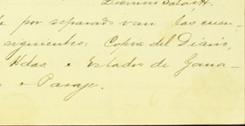 por separado van las cuen
siguientes: Copia del Diario,
Hdas. e Estados de Gana
o Paraje.